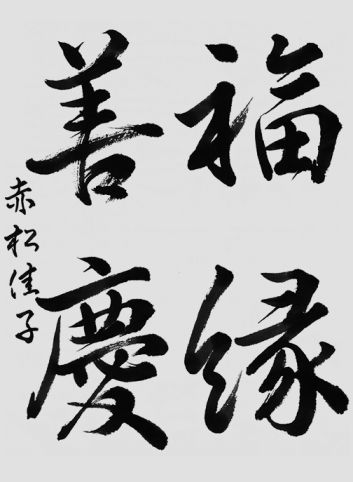 福縁
善慶
赤松佳子